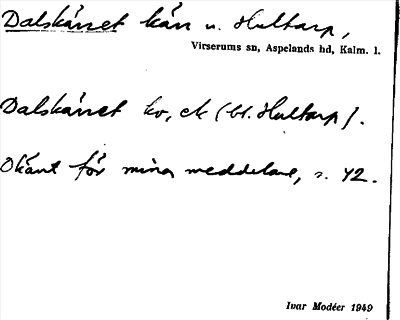 Dalskärret kärr u. Hultarp,
Virserums sn, Aspelands hd, Kalm. l.
Dalskärret kv, ek (bl. Hultarp).
Okänt för mina meddelare, s. 42.
Ivar Modéer 1949